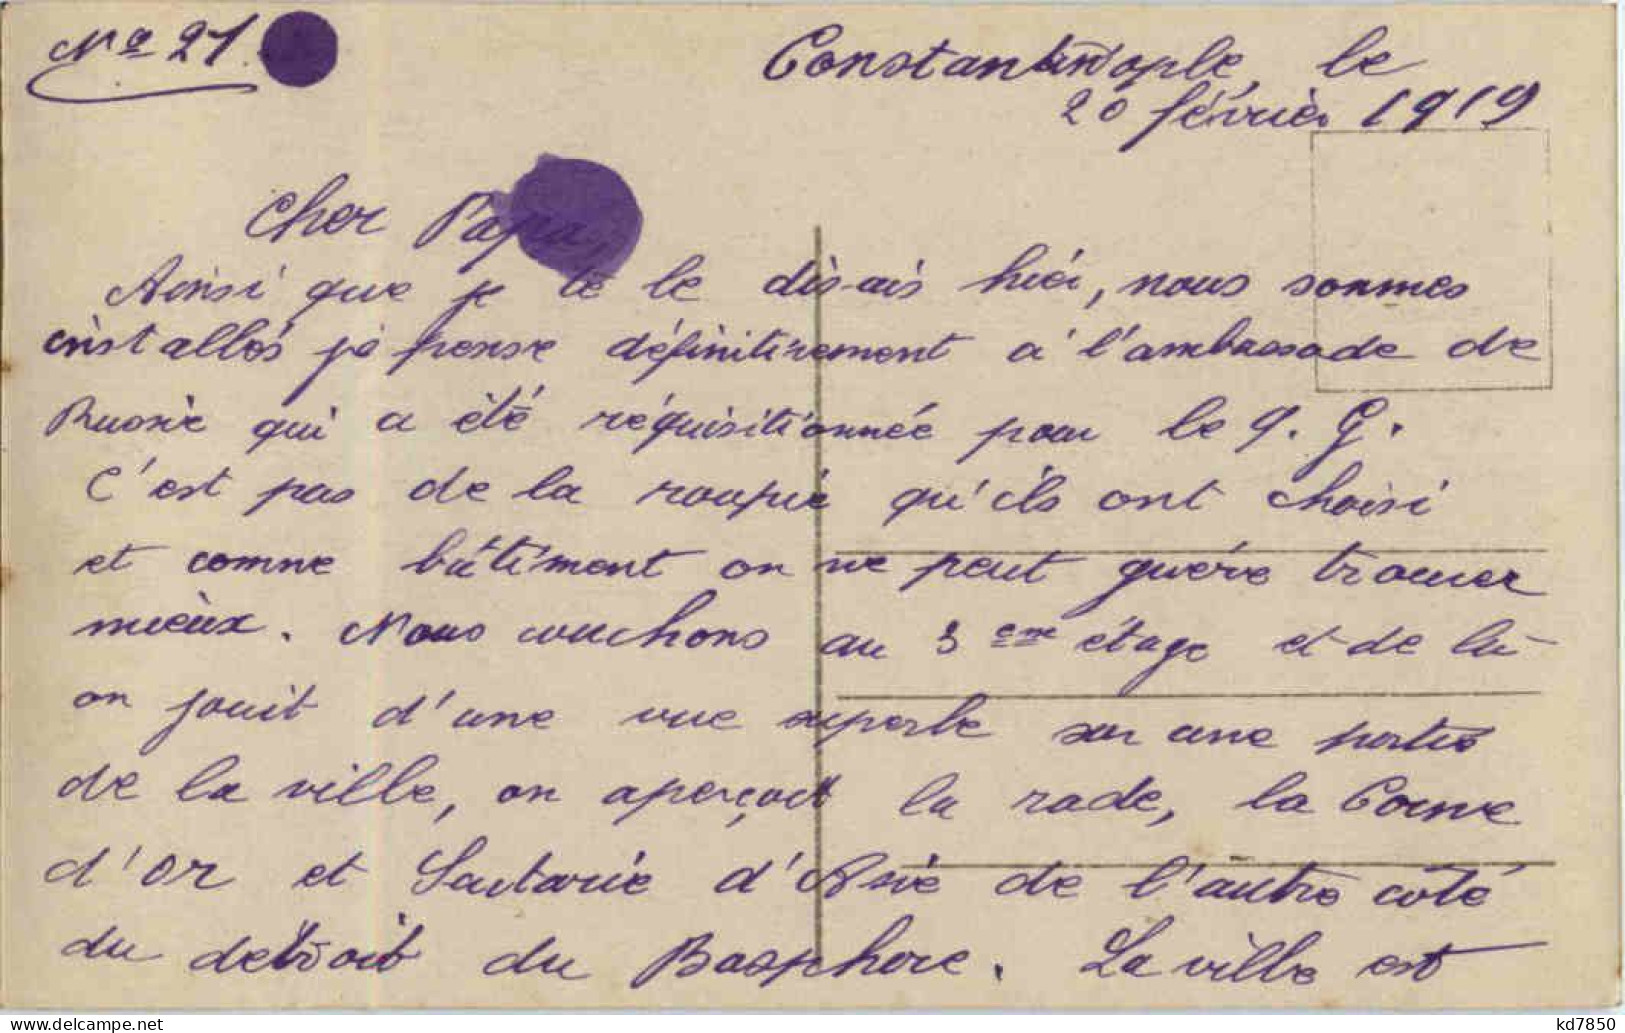 No 21.
Constantinople, le
20 février 1919
Cher Papa,
Ainsi que je te le disais hier, nous sommes
installés je pense définitivement à l'ambassade de
Russie qui a été réquisitionnée pour le Q. G.
C'est pas de la roupie qu'ils ont choisi
et comme bâtiment on ne peut guère trouver
mieux. Nous couchons au 3 ème étage et de là
on jouit d'une vue superbe sur une partie
de la ville, on aperçoit la rade, la Corne
d'Or et Scutarie d'Asie de l'autre coté
du detroit du Bosphore. La ville est
kd7850